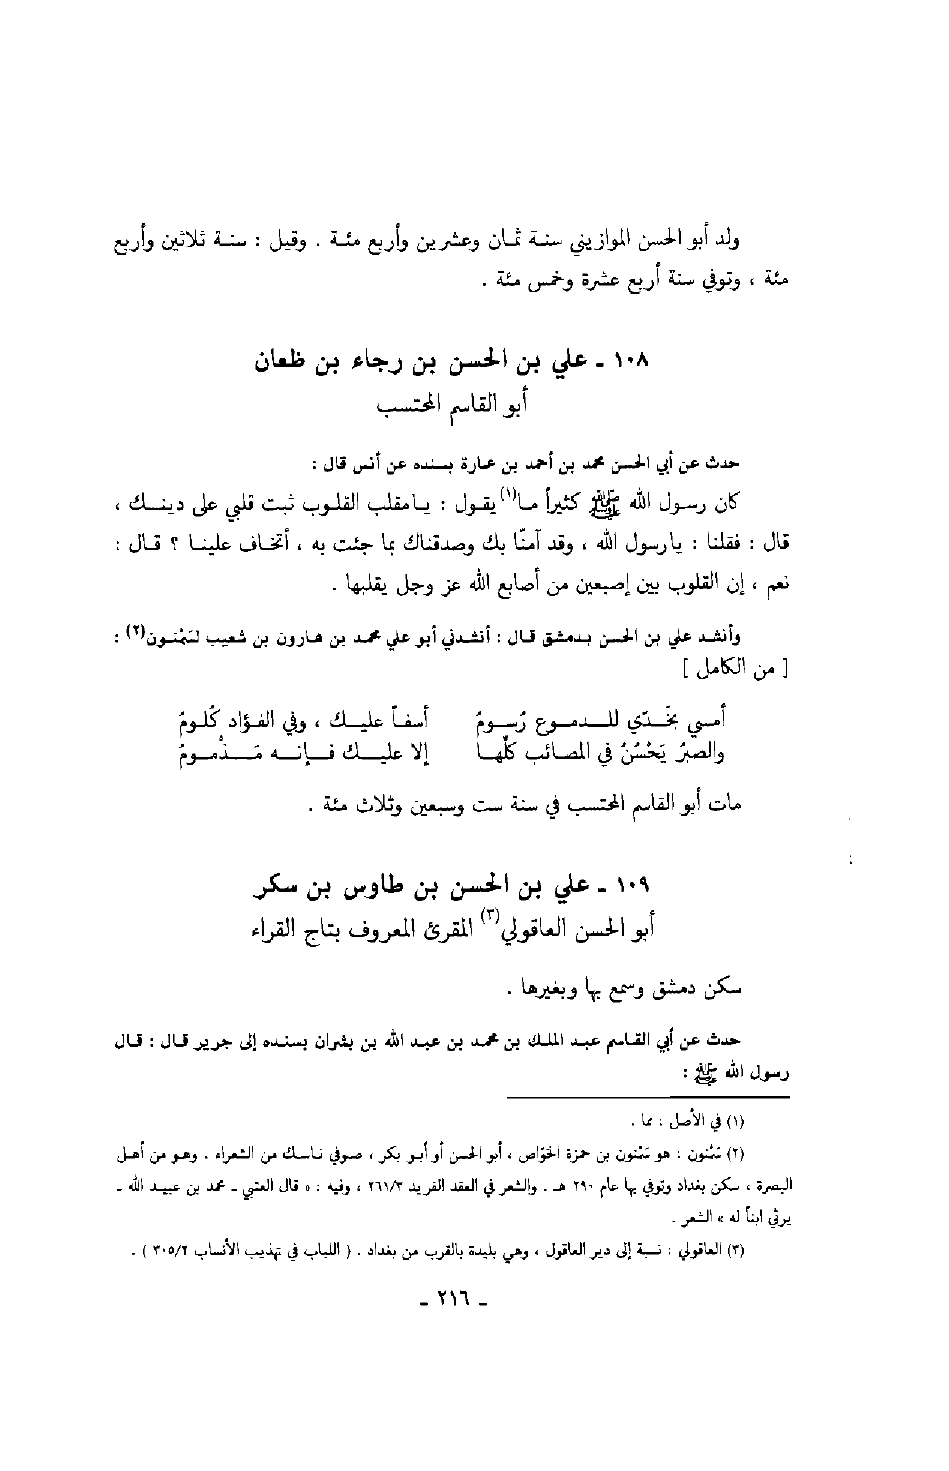 ولد أبو الحسن الموازيني سنة ثمان وعشرين وأربع مئة . وقيل : سنة ثلاثين وأربع
مئة ، وتوفي سنة أربع عشرة وخمس مئة .
١٠٨ ـ علي بن الحسن بن رجاء بن ظعان
أبو القاسم المحتسب
حدث عن أبي الحسن محمد بن أحمد بن عمارة بسنده عن أنس قال :
كان رسول الله ﷺ كثيراً ما(١) يقول : يامقلب القلوب ثبت قلبي على دينك ،
قال : فقلنا : يارسول الله ، وقد آمنّا بك وصدقناك بما جئت به ، أتخاف علينا ؟ قال :
نعم ، إن القلوب بين إصبعين من أصابع الله عز وجل يقلبها .
وأنشد علي بن الحسن بدمشق قال : أنشدني أبو علي محمد بن هارون بن شعيب لسَمْنون(٢) :
[ من الكامل ]
أمسى بخدّي للدموع رُسومُ أسفاً عليك ، وفي الفؤاد كُلومُ
والصبرُ يَحْسُنُ في المصائب كلِّها إلا عليك فإنه مَذْمومُ
مات أبو القاسم المحتسب في سنة ست وسبعين وثلاث مئة .
١٠٩ ـ علي بن الحسن بن طاوس بن سكر
أبو الحسن العاقولي(٣) المقرئ المعروف بتاج القراء
سكن دمشق وسمع بها وبغيرها .
حدث عن أبي القاسم عبد الملك بن محمد بن عبد الله بن بشران بسنده إلى جرير قال : قال
رسول الله ﷺ :
(١) في الأصل : مما .
(٢) سَمْنون : هو سَمْنون بن حمزة الخوّاص ، أبو الحسن أو أبو بكر ، صوفي ناسك من الشعراء . وهو من أهل
البصرة ، سكن بغداد وتوفي بها عام ٢٩٠ هـ . والشعر في العقد الفريد ٢٦١/٣ ، وفيه : « قال العتبي ـ محمد بن عبيد الله ـ
يرثي ابناً له » الشعر .
(٣) العاقولي : نسبة إلى دير العاقول ، وهي بليدة بالقرب من بغداد . ( اللباب في تهذيب الأنساب ٣٠٥/٢ ) .
ـ ٢١٦ ـ